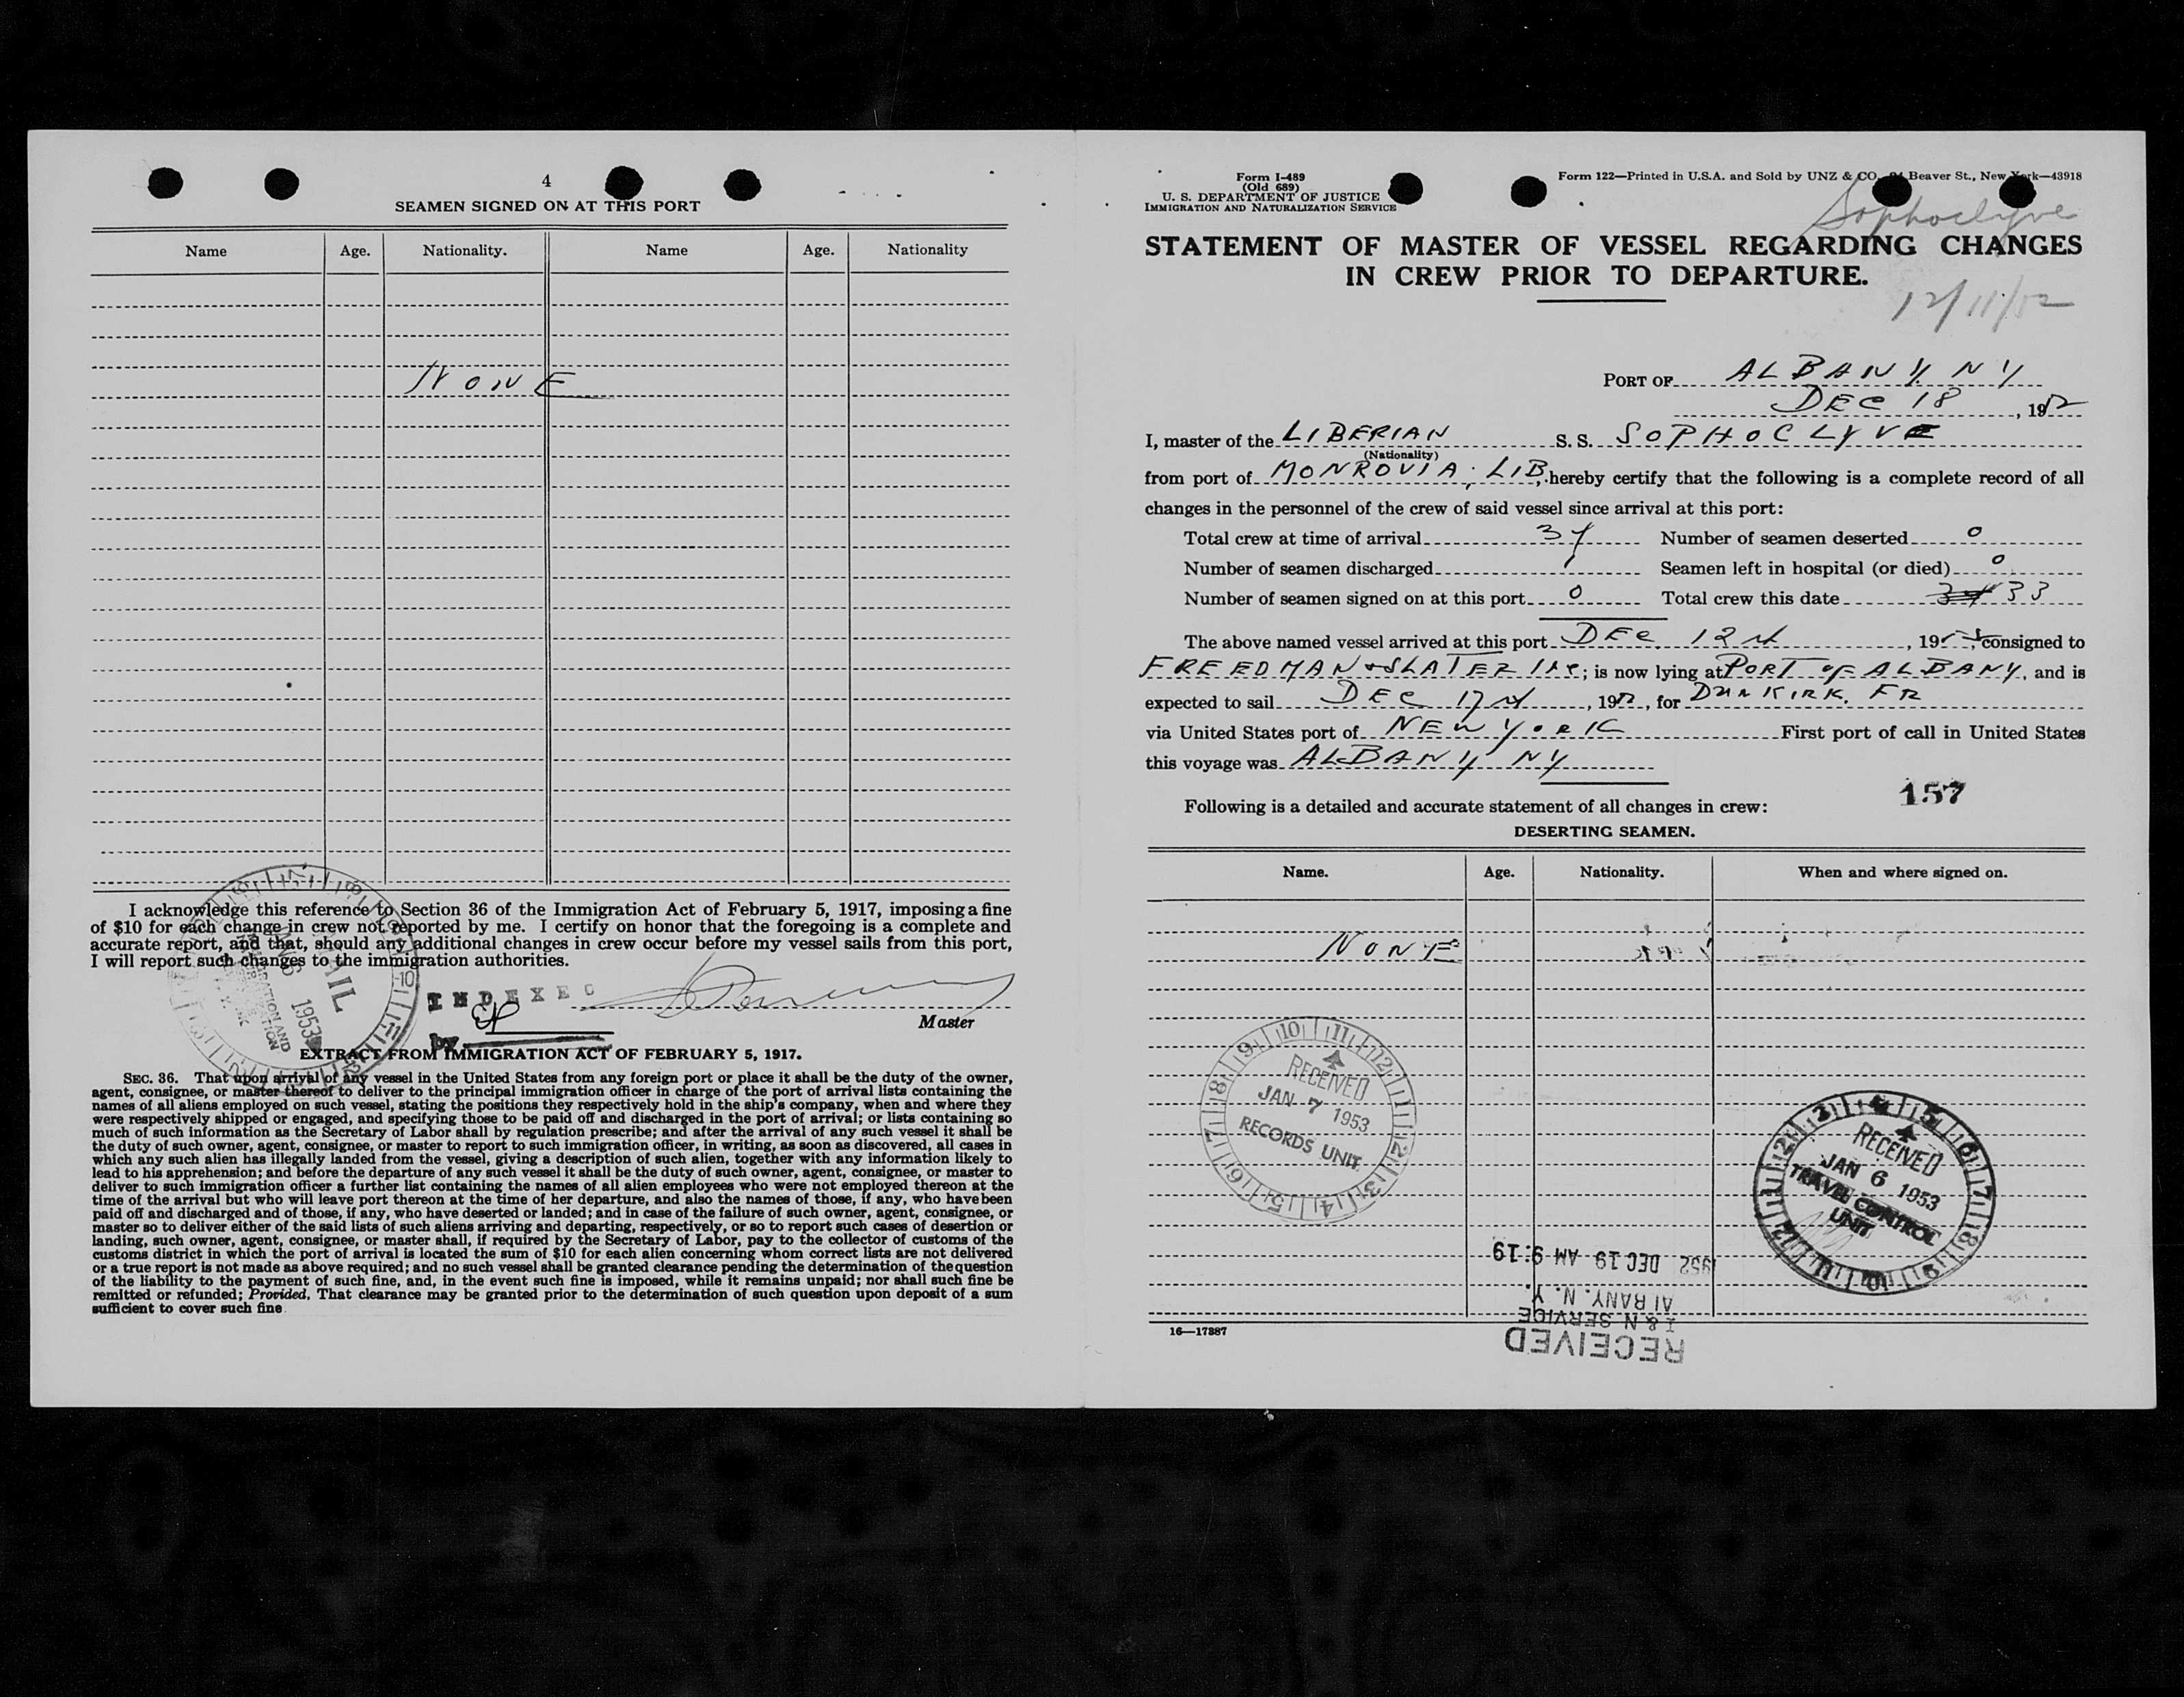 4
SEAMEN SIGNED ON AT THIS PORT
Name Age. Nationality. Name Age. Nationality
NONE
I acknowledge this reference to Section 36 of the Immigration Act of February 5, 1917, imposing a fine
of $10 for each change in crew not reported by me. I certify on honor that the foregoing is a complete and
accurate report, and that, should any additional changes in crew occur before my vessel sails from this port,
I will report such changes to the immigration authorities.
MAIL
1953
INDEXED
by
Master
EXTRACT FROM IMMIGRATION ACT OF FEBRUARY 5, 1917.
SEC. 36. That upon arrival of any vessel in the United States from any foreign port or place it shall be the duty of the owner,
agent, consignee, or master thereof to deliver to the principal immigration officer in charge of the port of arrival lists containing the
names of all aliens employed on such vessel, stating the positions they respectively hold in the ship's company, when and where they
were respectively shipped or engaged, and specifying those to be paid off and discharged in the port of arrival; or lists containing so
much of such information as the Secretary of Labor shall by regulation prescribe; and after the arrival of any such vessel it shall be
the duty of such owner, agent, consignee, or master to report to such immigration officer, in writing, as soon as discovered, all cases in
which any such alien has illegally landed from the vessel, giving a description of such alien, together with any information likely to
lead to his apprehension; and before the departure of any such vessel it shall be the duty of such owner, agent, consignee, or master to
deliver to such immigration officer a further list containing the names of all alien employees who were not employed thereon at the
time of the arrival but who will leave port thereon at the time of her departure, and also the names of those, if any, who have been
paid off and discharged and of those, if any, who have deserted or landed; and in case of the failure of such owner, agent, consignee, or
master so to deliver either of the said lists of such aliens arriving and departing, respectively, or so to report such cases of desertion or
landing, such owner, agent, consignee, or master shall, if required by the Secretary of Labor, pay to the collector of customs of the
customs district in which the port of arrival is located the sum of $10 for each alien concerning whom correct lists are not delivered
or a true report is not made as above required; and no such vessel shall be granted clearance pending the determination of the question
of the liability to the payment of such fine, and, in the event such fine is imposed, while it remains unpaid; nor shall such fine be
remitted or refunded; Provided, That clearance may be granted prior to the determination of such question upon deposit of a sum
sufficient to cover such fine.
Form I-489
(Old 689)
U. S. DEPARTMENT OF JUSTICE
IMMIGRATION AND NATURALIZATION SERVICE
Form 122—Printed in U.S.A. and Sold by UNZ & CO. Beaver St., New York—43918
Sophoclyve
STATEMENT OF MASTER OF VESSEL REGARDING CHANGES
IN CREW PRIOR TO DEPARTURE.
12/11/52
PORT OF ALBANY NY
DEC 18, 1952
I, master of the LIBERIAN S. S. SOPHOCLYVE
(Nationality)
from port of MONROVIA. LIB, hereby certify that the following is a complete record of all
changes in the personnel of the crew of said vessel since arrival at this port:
Total crew at time of arrival 34 Number of seamen deserted 0
Number of seamen discharged 1 Seamen left in hospital (or died) 0
Number of seamen signed on at this port 0 Total crew this date 34 33
The above named vessel arrived at this port DEC. 12, 195 consigned to
FREEDMAN & SLATER INC; is now lying at PORT OF ALBANY, and is
expected to sail DEC, 1952, for DUNKIRK. FR
via United States port of NEW YORK First port of call in United States
this voyage was ALBANY NY
157
Following is a detailed and accurate statement of all changes in crew:
DESERTING SEAMEN.
Name. Age. Nationality. When and where signed on.
NONE
RECEIVED
JAN 7 1953
RECORDS UNIT
RECEIVED
JAN 6 1953
TRAVEL CONTROL
UNIT
RECEIVED
I & N SERVICE
ALBANY. N. Y.
1952 DEC 19 AM 9:19
16—17887